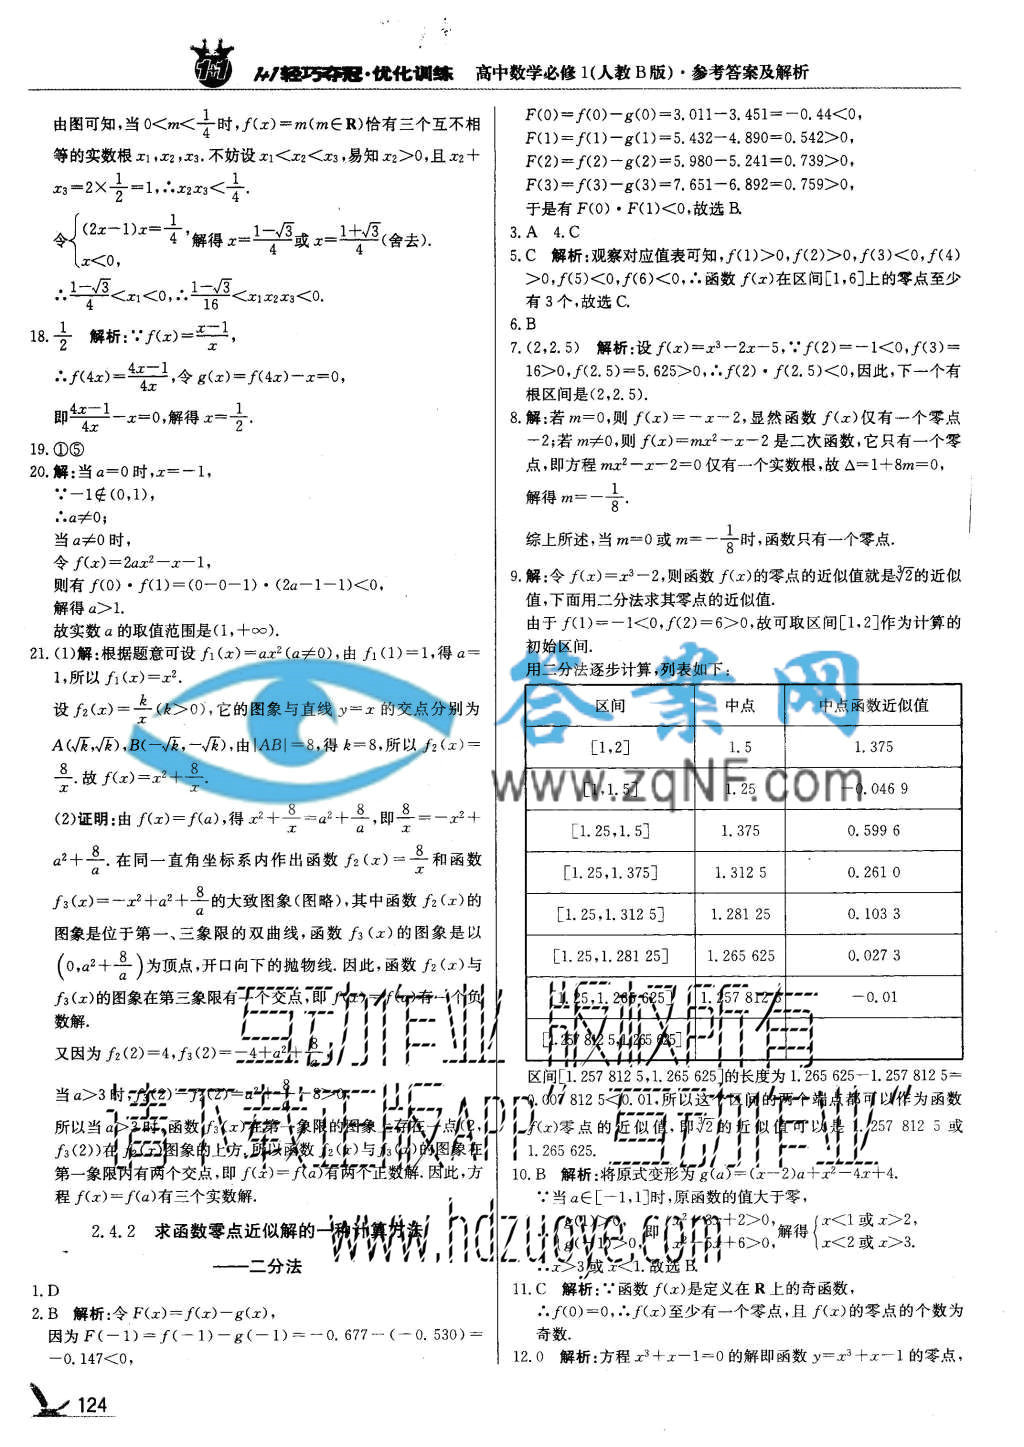 1+1
1+1轻巧夺冠·优化训练 高中数学必修1(人教B版)·参考答案及解析
由图可知,当0<m<1/4时,f(x)=m(m∈R)恰有三个互不相
等的实数根x₁,x₂,x₃.不妨设x₁<x₂<x₃,易知x₂>0,且x₂+
x₃=2×1/2=1,∴x₂x₃<1/4.
令{(2x-1)x=1/4, x<0, 解得x=(1-√3)/4或x=(1+√3)/4(舍去).
∴(1-√3)/4<x₁<0,∴(1-√3)/16<x₁x₂x₃<0.
18.1/2 解析:∵f(x)=(x-1)/x,
∴f(4x)=(4x-1)/4x,令g(x)=f(4x)-x=0,
即(4x-1)/4x-x=0,解得x=1/2.
19.①⑤
20.解:当a=0时,x=-1,
∵-1∉(0,1),
∴a≠0;
当a≠0时,
令f(x)=2ax²-x-1,
则有f(0)·f(1)=(0-0-1)·(2a-1-1)<0,
解得a>1.
故实数a的取值范围是(1,+∞).
21.(1)解:根据题意可设f₁(x)=ax²(a≠0),由f₁(1)=1,得a=
1,所以f₁(x)=x².
设f₂(x)=k/x(k>0),它的图象与直线y=x的交点分别为
A(√k,√k),B(-√k,-√k),由|AB|=8,得k=8,所以f₂(x)=
8/x.故f(x)=x²+8/x.
(2)证明:由f(x)=f(a),得x²+8/x=a²+8/a,即8/x=-x²+
a²+8/a.在同一直角坐标系内作出函数f₂(x)=8/x和函数
f₃(x)=-x²+a²+8/a的大致图象(图略),其中函数f₂(x)的
图象是位于第一、三象限的双曲线,函数f₃(x)的图象是以
(0,a²+8/a)为顶点,开口向下的抛物线.因此,函数f₂(x)与
f₃(x)的图象在第三象限有一个交点,即f(x)=f(a)有一个负
数解.
又因为f₂(2)=4,f₃(2)=-4+a²+8/a,
当a>3时,f₃(2)-f₂(2)=a²+8/a-8>0,
所以当a>3时,函数f₃(x)在第一象限的图象上存在一点(2,
f₃(2))在f₂(x)图象的上方,所以函数f₂(x)与f₃(x)的图象在
第一象限内有两个交点,即f(x)=f(a)有两个正数解.因此,方
程f(x)=f(a)有三个实数解.
2.4.2 求函数零点近似解的一种计算方法
——二分法
1.D
2.B 解析:令F(x)=f(x)-g(x),
因为F(-1)=f(-1)-g(-1)=-0.677-(-0.530)=
-0.147<0,
F(0)=f(0)-g(0)=3.011-3.451=-0.44<0,
F(1)=f(1)-g(1)=5.432-4.890=0.542>0,
F(2)=f(2)-g(2)=5.980-5.241=0.739>0,
F(3)=f(3)-g(3)=7.651-6.892=0.759>0,
于是有F(0)·F(1)<0,故选B.
3.A 4.C
5.C 解析:观察对应值表可知,f(1)>0,f(2)>0,f(3)<0,f(4)
>0,f(5)<0,f(6)<0,∴函数f(x)在区间[1,6]上的零点至少
有3个,故选C.
6.B
7.(2,2.5) 解析:设f(x)=x³-2x-5,∵f(2)=-1<0,f(3)=
16>0,f(2.5)=5.625>0,∴f(2)·f(2.5)<0,因此,下一个有
根区间是(2,2.5).
8.解:若m=0,则f(x)=-x-2,显然函数f(x)仅有一个零点
-2;若m≠0,则f(x)=mx²-x-2是二次函数,它只有一个零
点,即方程mx²-x-2=0仅有一个实数根,故Δ=1+8m=0,
解得m=-1/8.
综上所述,当m=0或m=-1/8时,函数只有一个零点.
9.解:令f(x)=x³-2,则函数f(x)的零点的近似值就是∛2的近似
值,下面用二分法求其零点的近似值.
由于f(1)=-1<0,f(2)=6>0,故可取区间[1,2]作为计算的
初始区间.
用二分法逐步计算,列表如下:
区间 中点 中点函数近似值
[1,2] 1.5 1.375
[1,1.5] 1.25 -0.046 9
[1.25,1.5] 1.375 0.599 6
[1.25,1.375] 1.312 5 0.261 0
[1.25,1.312 5] 1.281 25 0.103 3
[1.25,1.281 25] 1.265 625 0.027 3
[1.25,1.265 625] 1.257 812 5 -0.01
[1.257 812 5,1.265 625]
区间[1.257 812 5,1.265 625]的长度为1.265 625-1.257 812 5=
0.007 812 5<0.01,所以这个区间的两个端点都可以作为函数
f(x)零点的近似值,即∛2的近似值可以是1.257 812 5或
1.265 625.
10.B 解析:将原式变形为g(a)=(x-2)a+x²-4x+4.
∵当a∈[-1,1]时,原函数的值大于零,
∴{g(1)>0, g(-1)>0, 即{x²-3x+2>0, x²-5x+6>0, 解得{x<1或x>2, x<2或x>3.
∴x>3或x<1.故选B.
11.C 解析:∵函数f(x)是定义在R上的奇函数,
∴f(0)=0,∴f(x)至少有一个零点,且f(x)的零点的个数为
奇数.
12.0 解析:方程x³+x-1=0的解即函数y=x³+x-1的零点,
124
答案网
www.zqNF.com
互动作业 版权所有
请下载正版APP“互动作业”
www.hdzuoye.com